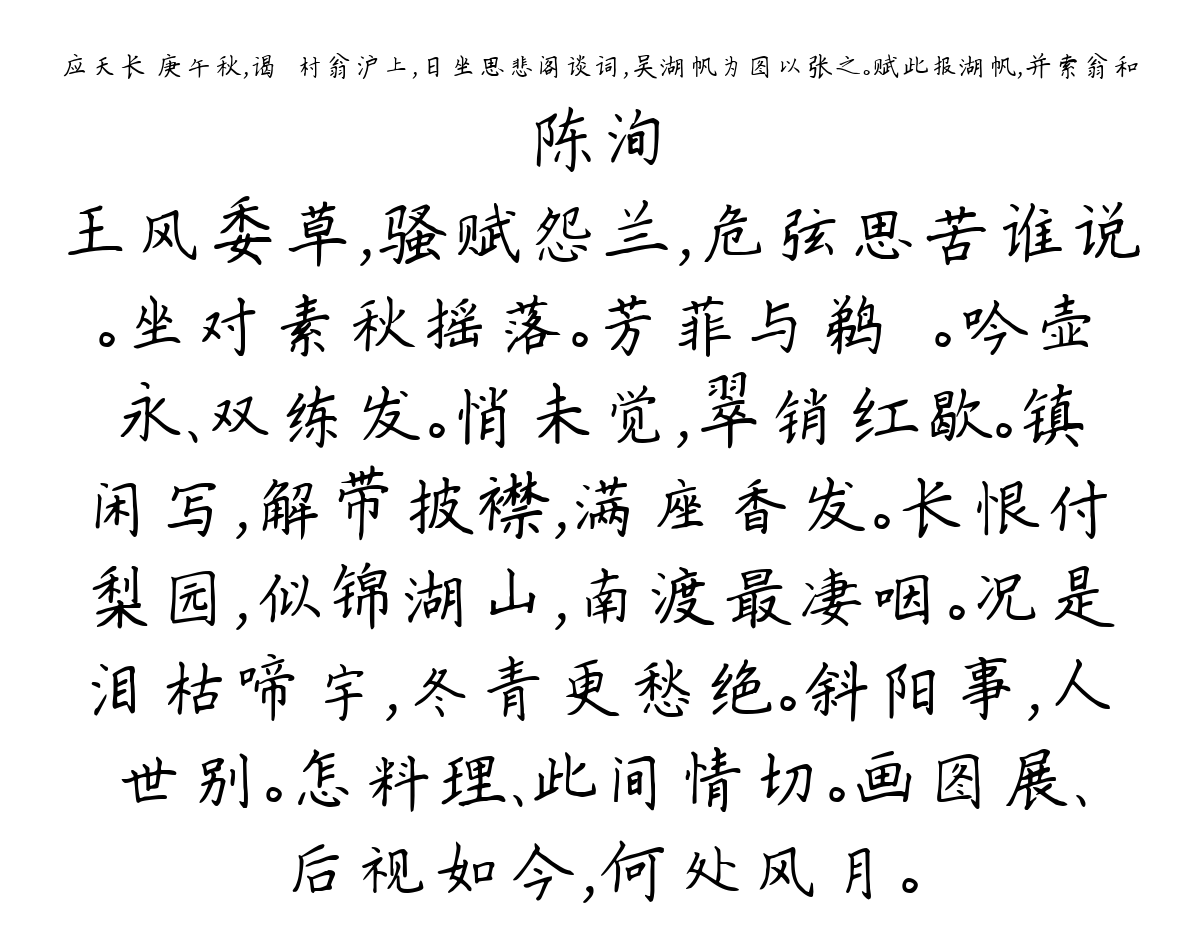 应天长 庚午秋,谒 村翁沪上,日坐思悲阁谈词,吴湖帆为图以张之。赋此报湖帆,并索翁和
陈洵
王风委草,骚赋怨兰,危弦思苦谁说
。坐对素秋摇落。芳菲与鹈 。吟壶
永、双练发。悄未觉,翠销红歇。镇
闲写,解带披襟,满座香发。长恨付
梨园,似锦湖山,南渡最凄咽。况是
泪枯啼宇,冬青更愁绝。斜阳事,人
世别。怎料理、此间情切。画图展、
后视如今,何处风月。